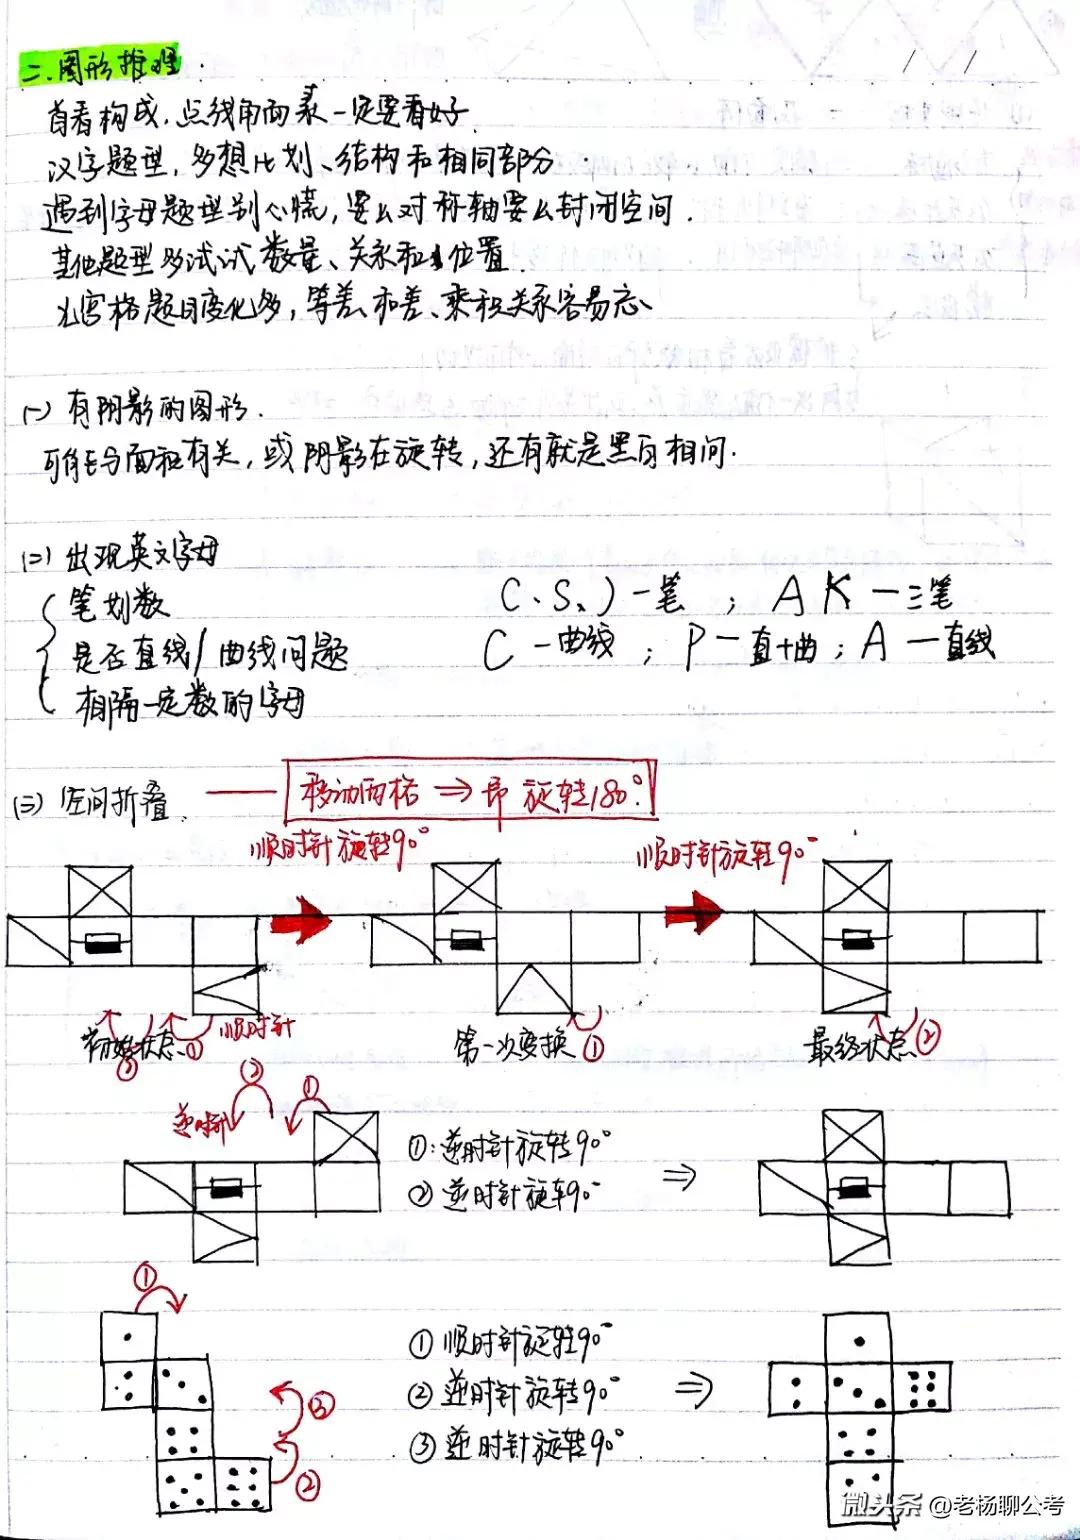 二.图形推理
首看构成,点线角面素一定要看好.
汉字题型,多想比划、结构和相同部分
遇到字母题型别心慌,要么对称轴要么封闭空间.
其他题型多试试数量、关系和位置.
九宫格题目变化多,等差、和差、乘积关系容易忘、
(一) 有阴影的图形.
可能与面积有关,或阴影在旋转,还有就是黑白相间.
(二) 出现英文字母
笔划数 C、S、) 一笔 ; A K 一三笔
是否直线/曲线问题 C 一曲线 ; P 一直+曲 ; A 一直线
相隔一定数的字母
(三) 空间折叠. 移动两格 ⇒ 即旋转180°.
顺时针旋转90° 顺时针旋转90°
初始状态 ② ① 顺时针 第一次变换 ① 最终状态 ②
逆时针 ② ①
①:逆时针旋转90°
② 逆时针旋转90° ⇒
①
① 顺时针旋转90°
② 逆时针旋转90° ⇒
③ 逆时针旋转90°
③
②
微头条 @老杨聊公考